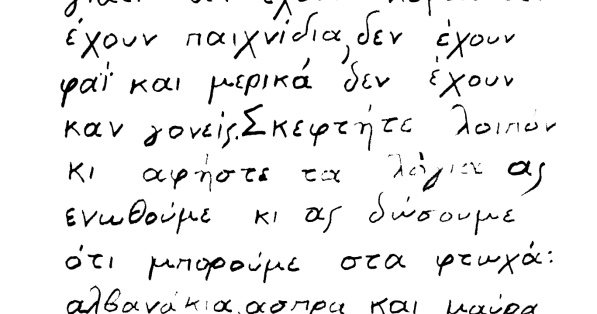 έχουν παιχνίδια, δεν έχουν
φαΐ και μερικά δεν έχουν
καν γονείς. Σκεφτήτε λοιπόν
κι αφήστε τα λόγια ας
ενωθούμε κι ας δώσουμε
ότι μπορούμε στα φτωχά:
αλβανάκια, ασπρα και μαύρα